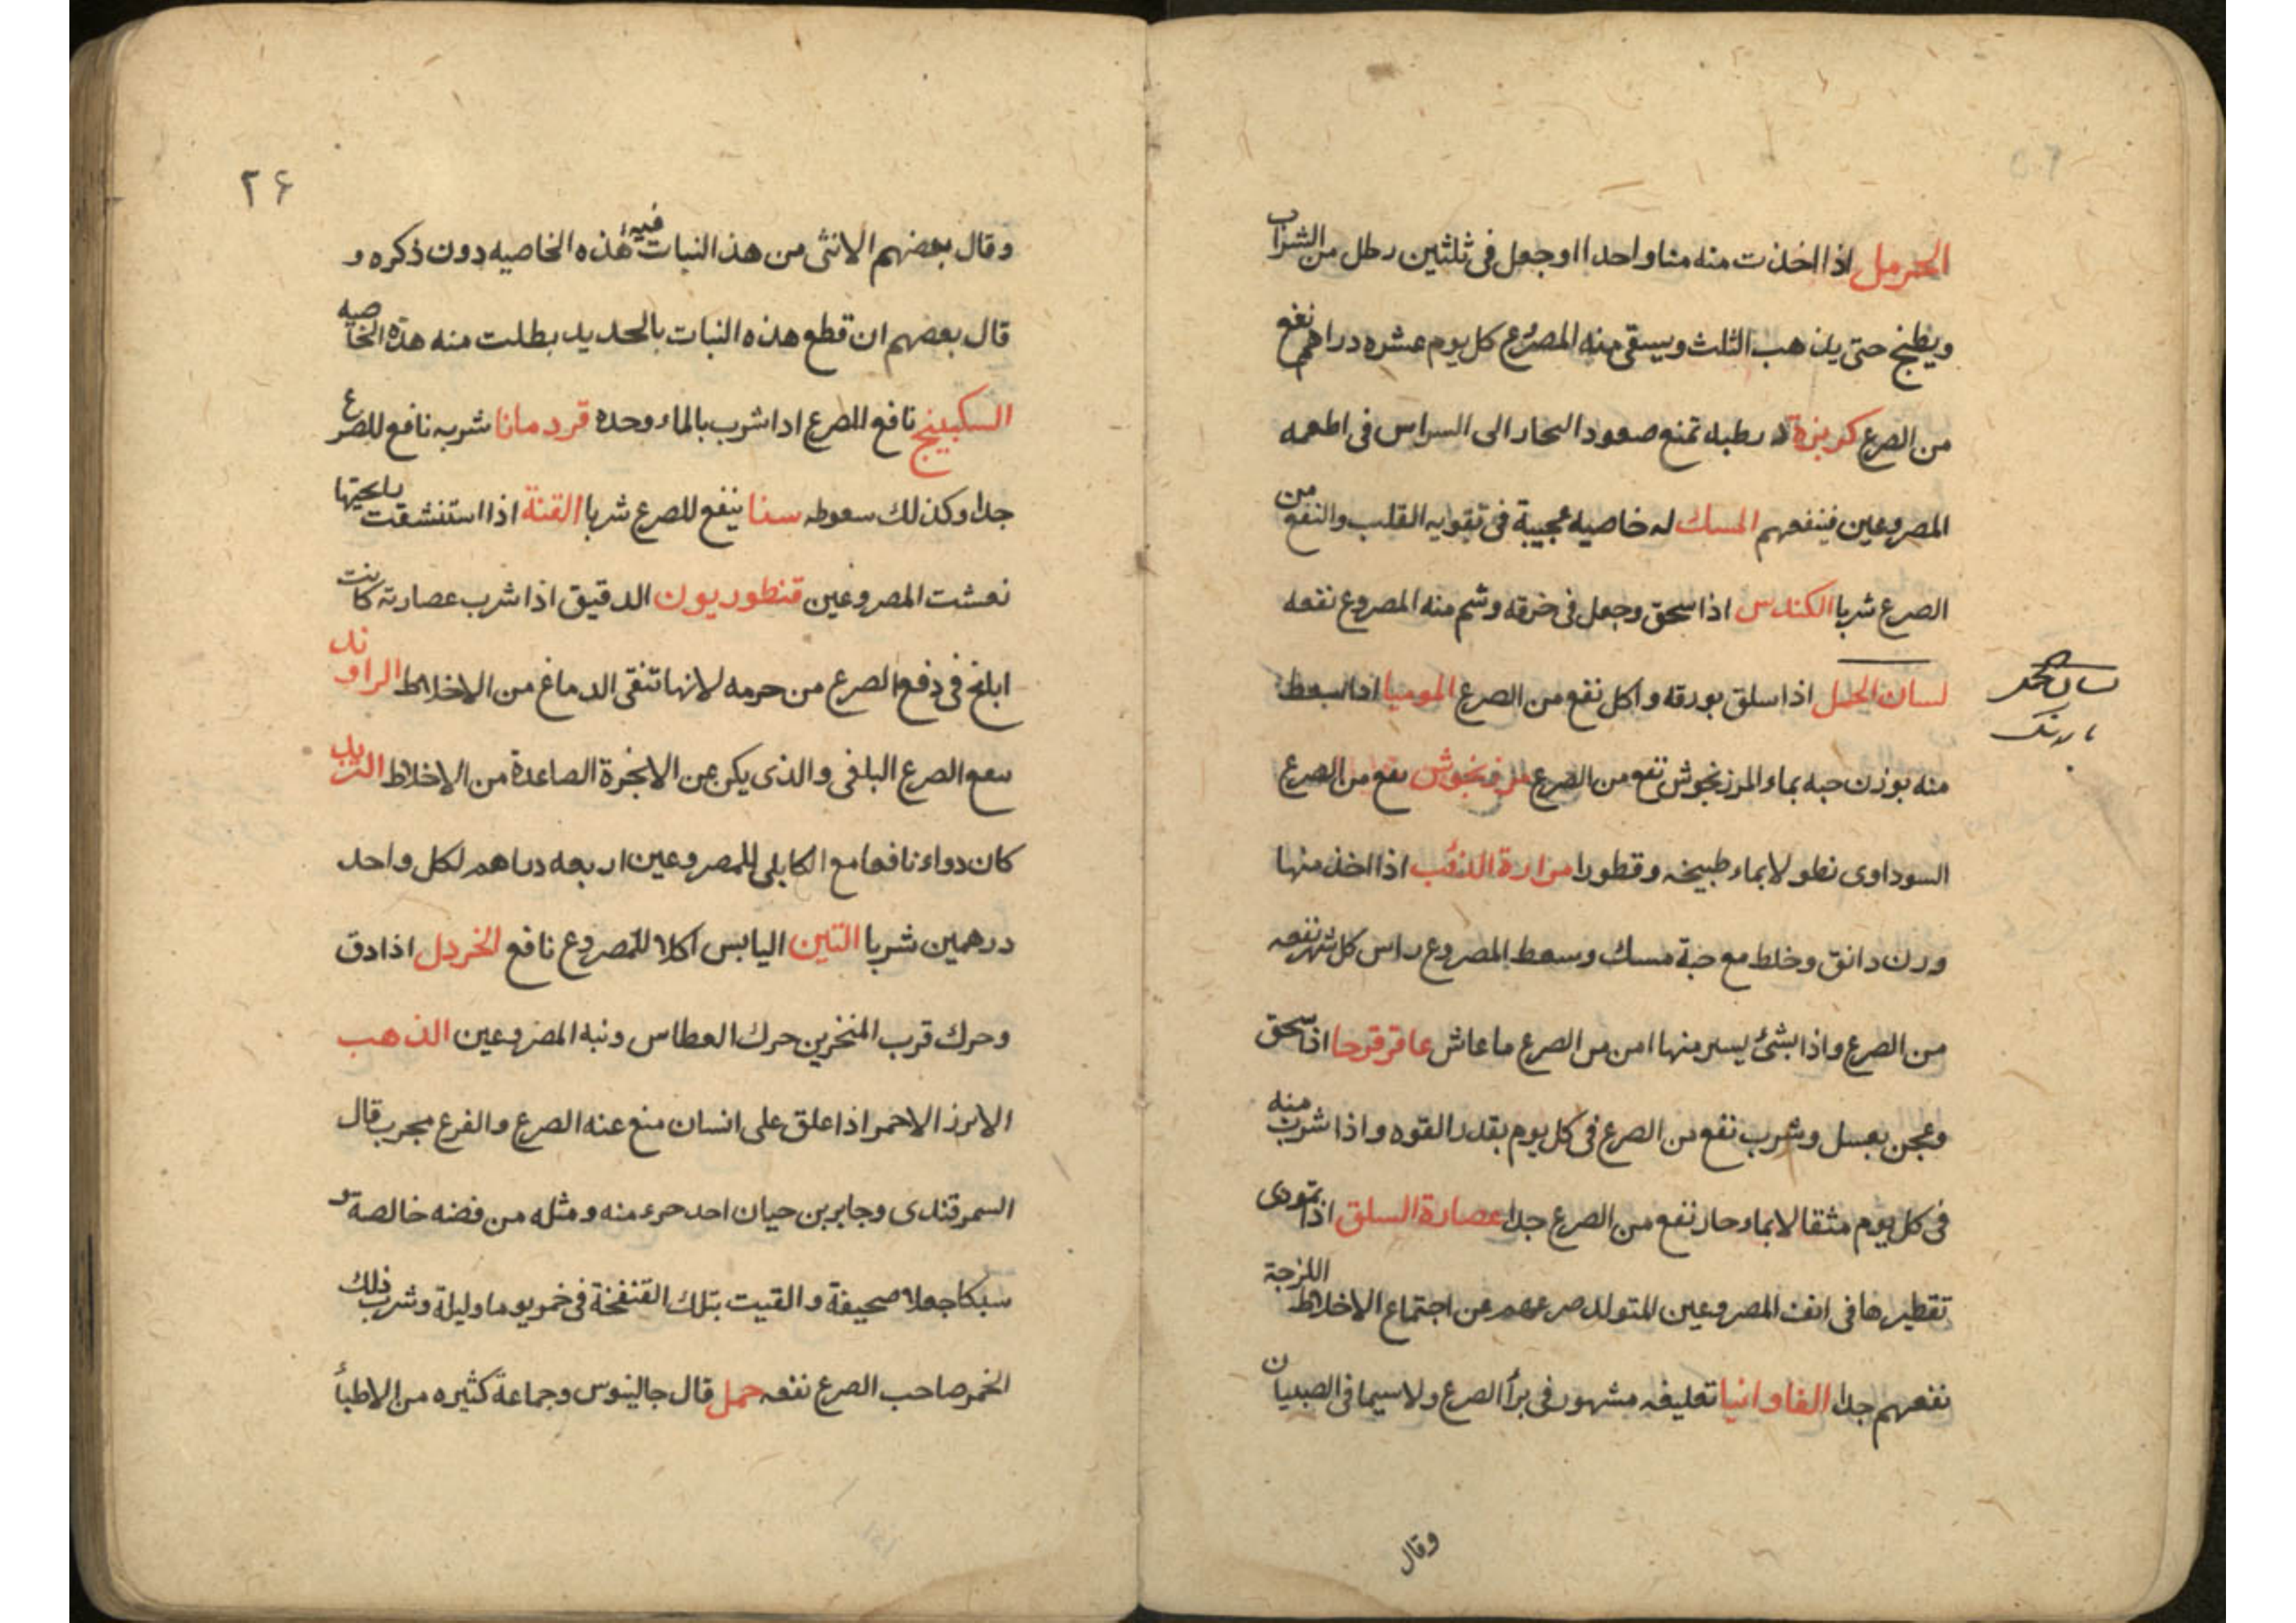 الحرمل اذا اخذت منه منا واحدا اوجعل فى ثلثين رطل من الشراب
ويطبخ حتى يذهب الثلث ويسقى منه المصرع كل يوم عشره دراهم نفع
من الصرع كزبزة رطبه تمنع صعود البحار الى السراس فى اطعمه
المصروعين فينفعهم المسك له خاصيه عجيبة فى تقويه القلب والنفع من
الصرع شربا الكندس اذا سحق وجعل فى خرقه وشم منه المصروع نفعه
لسان الحمل اذا سلق بورقه واكل نفع من الصرع الموميا اذا سعط
لسان الحمل
بارتنك
منه بوزن حبه بماء المرزنجوش نفع من الصرع مرزنجوش نفع من الصرع
السوداوى نطولا بماء طبيخه وقطورا مرارة الذئب اذا اخذ منها
ورن دانق وخلط مع حبة مسك وسعط المصروع راس كل شهر نفعه
من الصرع واذا بشئ يسير منها امن من الصرع ما عاش عاقرقرحا اذا سحق
وعجن بعسل وشرب نفع من الصرع فى كل يوم بقدر القوه واذا شرب منه
فى كل يوم مثقالا بماء حار نفع من الصرع جدا عصارة السلق اذا تمودى
تقطيرها فى انف المصروعين المتولد صرعهم عن اجتماع الاخلاط اللزجة
نفعهم جدا الفاوانيا تعليقه مشهور فى برأ الصرع ولاسيما فى الصبيان
وقال
٢۶
وقال بعضهم الانثى من هذ النبات فيه هذه الخاصيه دون ذكره و
قال بعضهم ان قطع هذه النبات بالحديد بطلت منه هذه الخاصيه
السكبينج نافع للصرع اذا شرب بالماء وحده قردمانا شربه نافع للصرع
جدا وكذلك سعوطه سنا ينفع للصرع شربا القنة اذا استنشقت
نعشت المصروعين قنطوريون الدقيق اذا شرب عصارته كانت
ابلغ فى دفع الصرع من جرمه لانها تنقى الدماغ من الاخلاط الراوند
ينفع الصرع البلغى والذى يكن عن الابخرة الصاعدة من الاخلاط التربد
كان دواء نافعا مع الكابلى للمصروعين اربعه دراهم لكل واحد
درهمين شربا التين اليابس اكلا للمصروع نافع الخردل اذا دق
وحرك قرب المنخرين حرك العطاس ونبه المصروعين الذهب
الابرز الاحمر اذا علق على انسان منع عنه الصرع والفزع مجرب قال
السمرقندى وجابر بن حيان احد جرء منه ومثله من فضه خالصة و
سبكا جعلا صحيفة والقيت بتلك القنفخة فى خمر يوما وليلة وشرب ذلك
الخمر صاحب الصرع نفعه حمل قال جالينوس وجماعة كثيره من الاطبأ